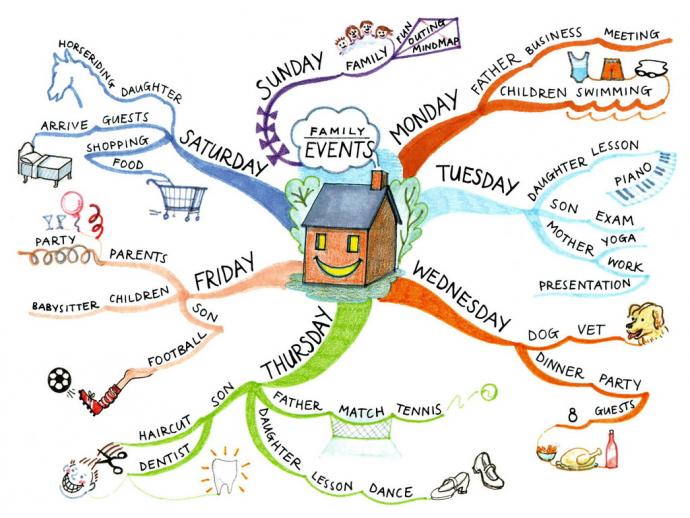 FAMILY
EVENTS
MONDAY
FATHER BUSINESS MEETING
CHILDREN SWIMMING
TUESDAY
DAUGHTER LESSON
PIANO
SON EXAM
MOTHER YOGA
WORK
PRESENTATION
WEDNESDAY
DOG VET
DINNER PARTY
8 GUESTS
THURSDAY
FATHER MATCH TENNIS
DAUGHTER LESSON DANCE
SON
HAIRCUT
DENTIST
FRIDAY
PARENTS
PARTY
CHILDREN
BABYSITTER
SON
FOOTBALL
SATURDAY
DAUGHTER
HORSERIDING
ARRIVE GUESTS
SHOPPING
FOOD
SUNDAY
FAMILY
FUN
OUTING
MINDMAP